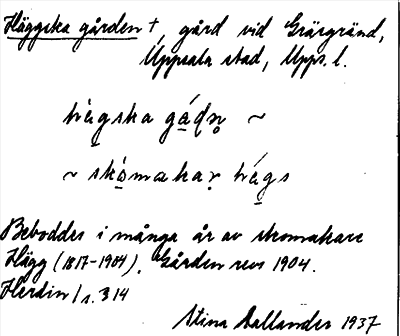 Häggska gården †, gård vid Gräsgränd,
Uppsala stad, Upps. l.
hägska gádn̥ ~
~ skómakar hägs
Beboddes i många år av skomakare
Hägg (1817-1904). Gården revs 1904.
Herdin 1 s. 314
Stina Hallander 1937